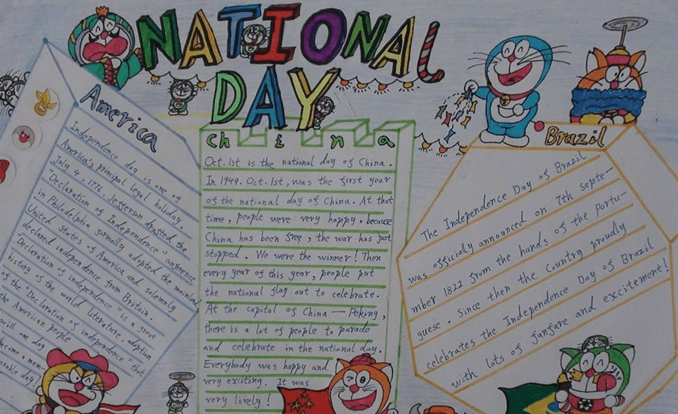 NATIONAL
DAY
America
Independence day is one of
America's principal legal holiday
July 4. 1776. Jefferson drafted the
"Declaration of Independence" conference
in Philadelphia formally adopted the
United States of America and solemnly
declared independence from Britain.
Declaration of independence "is a
history of the world literature, adoption
of the Declaration of independence" that
the American people
China
Oct. 1st is the national day of China.
In 1949. Oct. 1st, was the first year
of the national day of China. At that
time, people were very happy, because
China has been free, the war has just
stopped. We were the winner! Then
every year of this year, people put
the national flag out to celebrate.
At the capital of China — Peking,
there is a lot of people to parade
and celebrate in the national day.
Everybody was happy and
very exciting. It was
very lively!
Brazil
The Independence Day of Brazil
was officialy announced on 7th septe—
mber 1822 from the hands of the Portu—
guese. since then the Country proudly
celebrates the Independence Day of Brazil
with lots of fanfare and excitement!